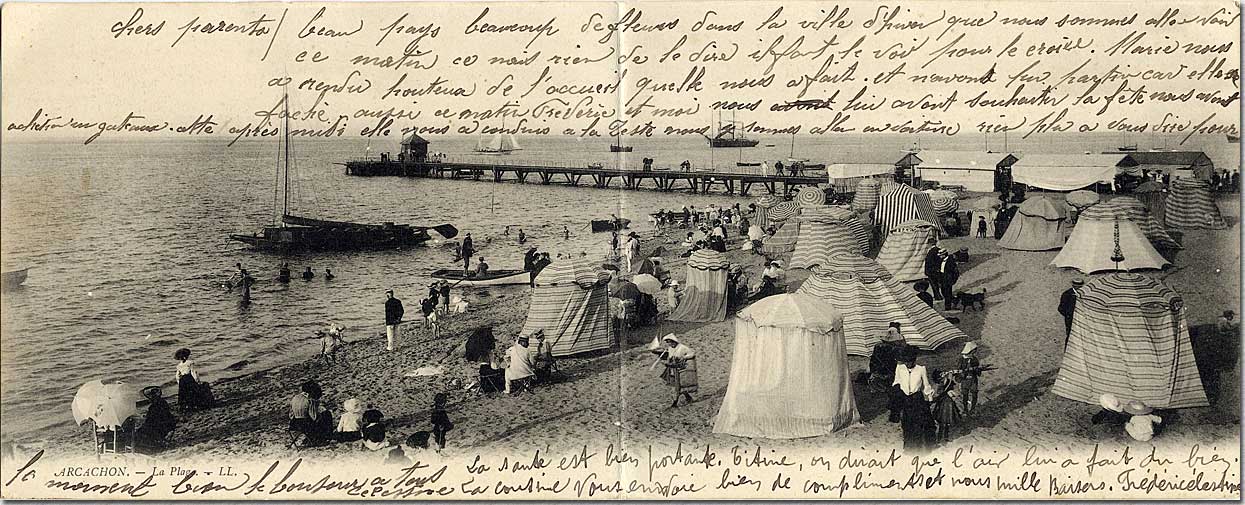 chers parents / beau pays beaucoup de fleurs dans la ville d'hiver que nous sommes aller voir
ce matin ce nais rien de le dire il faut le voir pour le croise. Marie nous
a rendu honteux de l'accueil quelle nous a fait. et navons pu partir car elle
faché aussi ce matin Frédéric et moi nous lui avont souhaiter la fête nous avont
acheter un gateaux. cette après midi elle nous a condnis a la Teste nous y sommes aller en voiture rien plu a vous dire pour
ARCACHON. - La Plage. - LL.
La santé est bien portante. Titine, on dirait que l'air lui a fait du bien.
le moment bien le bonjour a tous
Celestine La cousine Vous envoie bien de compliments et nous mille Baisers. Frédéric celestine